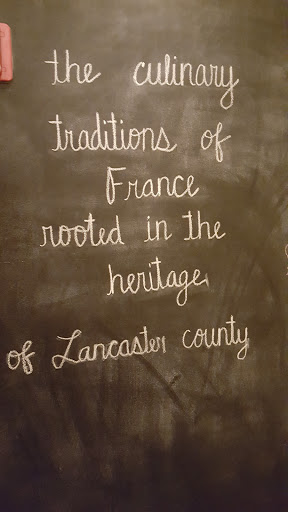 the culinary
traditions of
France
rooted in the
heritage
of Lancaster county